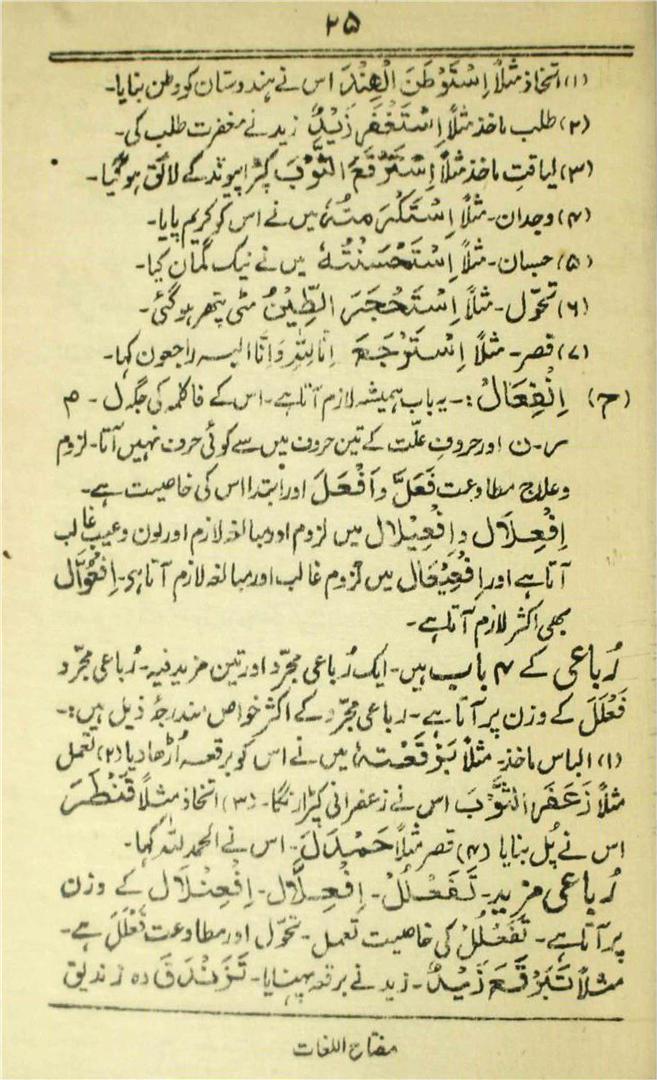 ۲۵
(۱) اتخاذ مثلاً اِسْتَوْطَنَ الْھِنْدَ اس نے ہندوستان کو وطن بنایا۔
(۲) طلب ماخذ مثلاً اِسْتَغْفَرَ زَیْدٌ زید نے مغفرت طلب کی۔
(۳) لیاقتِ ماخذ مثلاً اِسْتَرْقَعَ الثَّوْبَ کپڑا پیوند کے لائق ہو گیا۔
(۴) وجدان۔ مثلاً اِسْتَکْرَمْتُہٗ میں نے اس کو کریم پایا۔
(۵) حسبان۔ مثلاً اِسْتَحْسَنْتُہٗ میں نے نیک گمان کیا۔
(۶) تحوّل۔ مثلاً اِسْتَحْجَرَ الطِّیْنُ مٹی پتھر ہو گئی۔
(۷) قصر۔ مثلاً اِسْتَرْجَعَ اِنَّا لِلّٰہِ وَاِنَّا الیہ راجعون کہا۔
(ح) اِنْفِعَالٌ:۔ یہ باب ہمیشہ لازم آتا ہے۔ اس کے فا کلمہ کی جگہ ل۔ م
ر۔ ن اور حروفِ علّت کے تین حروف میں سے کوئی حرف نہیں آتا۔ لزوم
و علاج مطاوعت فَعَلَّ و اَفْعَلَ اور ابتدا اس کی خاصیت ہے۔
اِفْعِلَال و اِفْعِیْلَال میں لزوم اور مبالغہ لازم اور لون و عیب غالب
آتا ہے اور اِفْعِیْعَال میں لزوم غالب اور مبالغہ لازم آتا ہو۔ اِفْعِوَّال
بھی اکثر لازم آتا ہے۔
رُباعی کے ۴ باب ہیں۔ ایک رُباعی مجرّد اور تین مزید فیہ۔ رُباعی مجرّد
فَعْلَلَ کے وزن پر آتا ہے۔ رباعی مجرّد کے اکثر خواص مندرجۂ ذیل ہیں:۔
(۱) الباس ماخذ۔ مثلاً بَرْقَعْتُہٗ میں نے اس کو برقعہ اُڑھا دیا (۲) تعمل
مثلاً زَعْفَرَ الثَّوْبَ اس نے زعفرانی کپڑا رنگا۔ (۳) اتخاذ مثلاً قَنْطَرَ
اس نے پُل بنایا (۴) قصر مثلاً حَمْدَلَ۔ اس نے الحمد للہ کہا۔
رُباعی مزید۔ تَفَعْلُلٌ۔ اِفْعِلَّال۔ اِفْعِنْلَال کے وزن
پر آتا ہے۔ تَفَعْلُلٌ کی خاصیت تعمل۔ تحوّل اور مطاوعت فَعْلَلَ ہے۔
مثلاً تَبَرْقَعَ زَیْدٌ۔ زید نے برقعہ پہنایا۔ تَزَنْدَقَ وہ زندیق
مفتاح اللغات